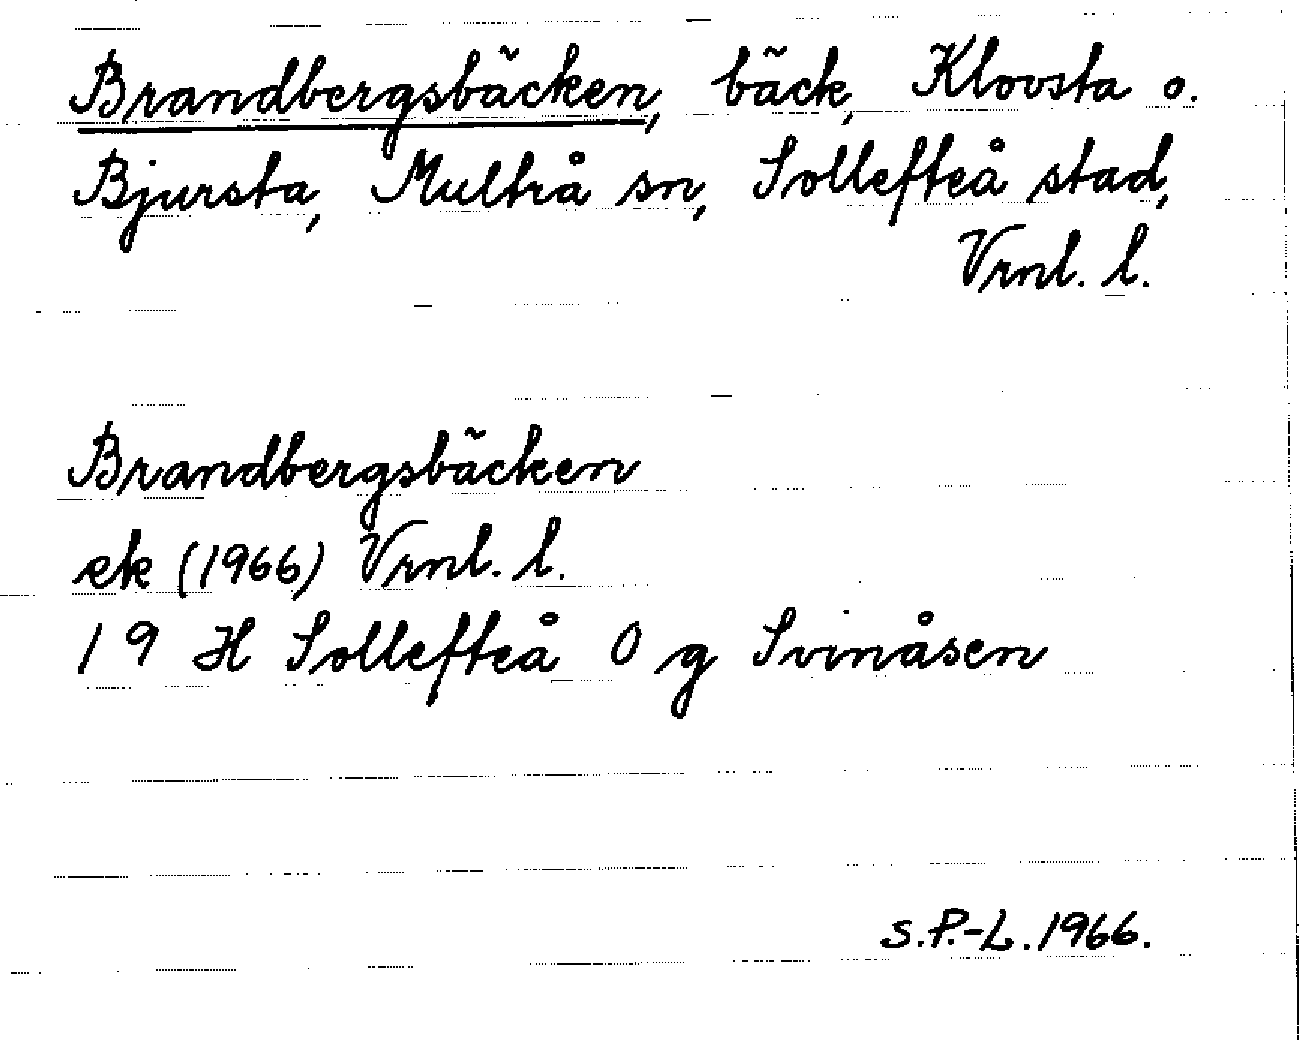 Brandbergsbäcken, bäck, Klovsta o.
Bjursta, Multrå sn, Sollefteå stad,
Vrnl. l.
Brandbergsbäcken
ek (1966) Vrnl. l.
19 H Sollefteå 0 g Svinåsen
S.P.-L. 1966.